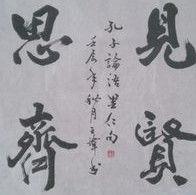 見賢
思齊
孔子論語里仁句
壬辰年秋月